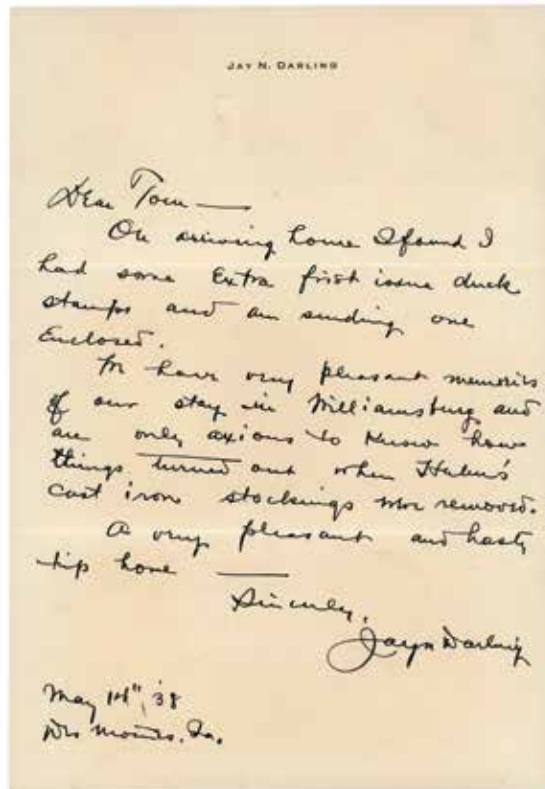 JAY N. DARLING
Dear Tom —
On arriving home I found I
had some Extra first issue duck
stamps and am sending one
Enclosed.
We have very pleasant memories
of our stay in Williamsburg and
are only axious to know how
things turned out when Helen's
cast iron stockings were removed.
A very pleasant and hasty
trip home —
Sincerely,
Jay N Darling
May 14", '38
Des Moines, Ia.